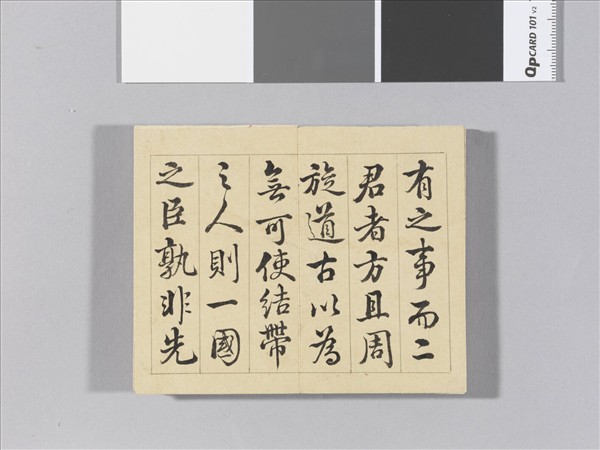 有之事而二
君者方且周
旋道古以為
無可使結帶
之人則一國
之臣孰非先
QpCARD 101 v2